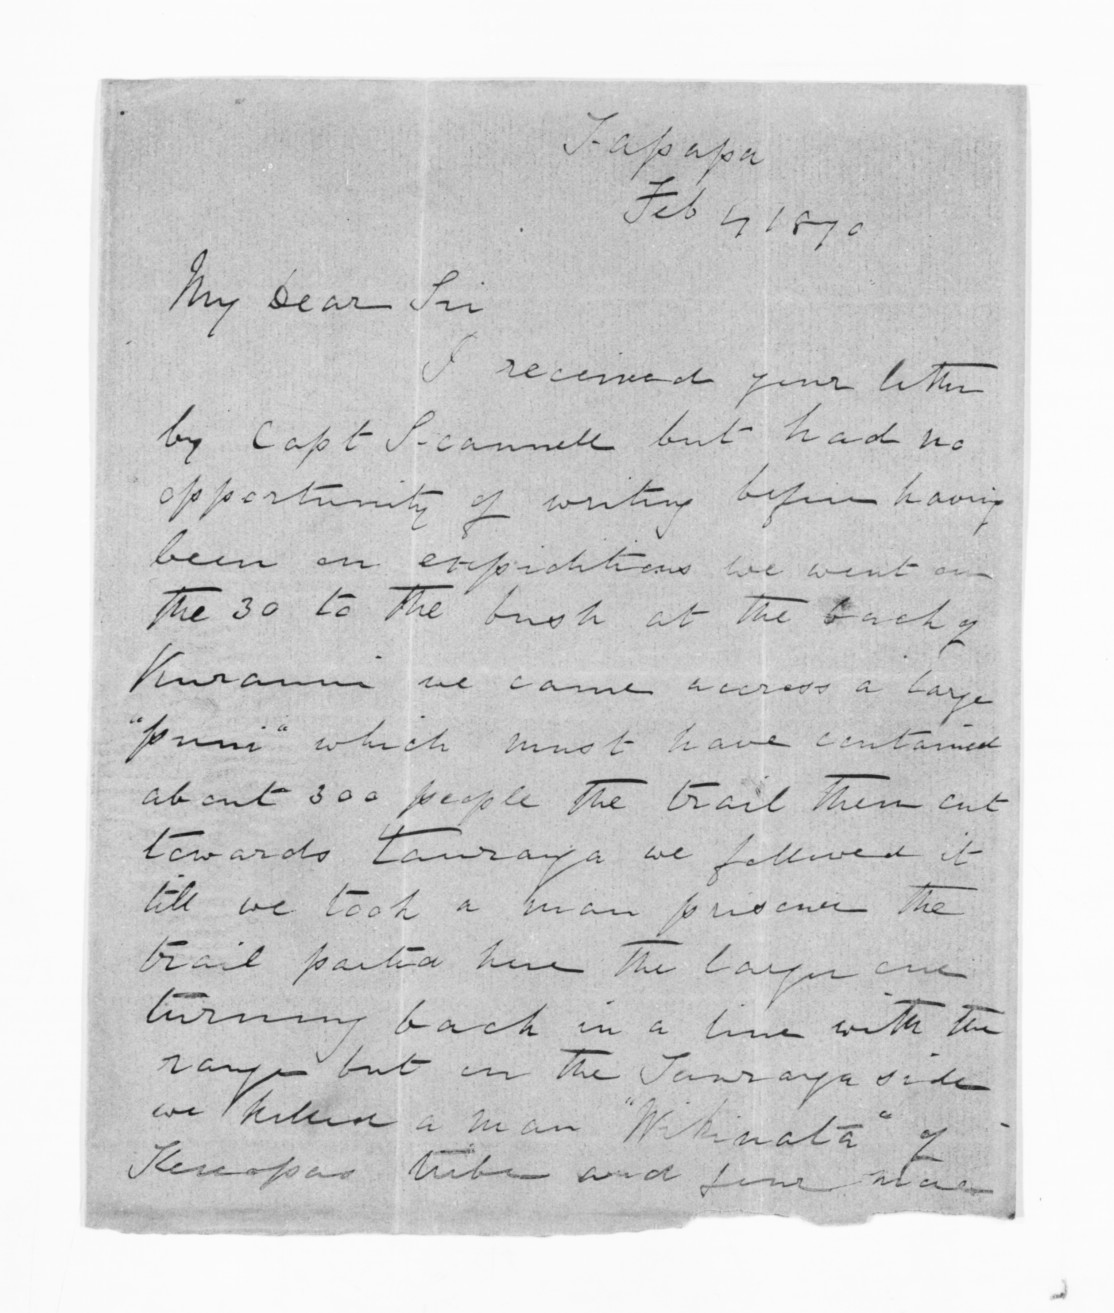 Tapapa
Feb 4 1870
My Dear Sir
I received your letter
by Capt Scannell but had no
opportunity of writing before having
been on expiditions we went on
the 30 to the bush at the back of
Kuranui we came accross a large
"puni" which must have contained
about 300 people the trail then cut
towards Tauranga we followed it
till we took a man prisoner the
trail parted here the larger one
turning back in a line with the
range but on the Tauranga side
we killed a man "Wikinata" of
tribe and four